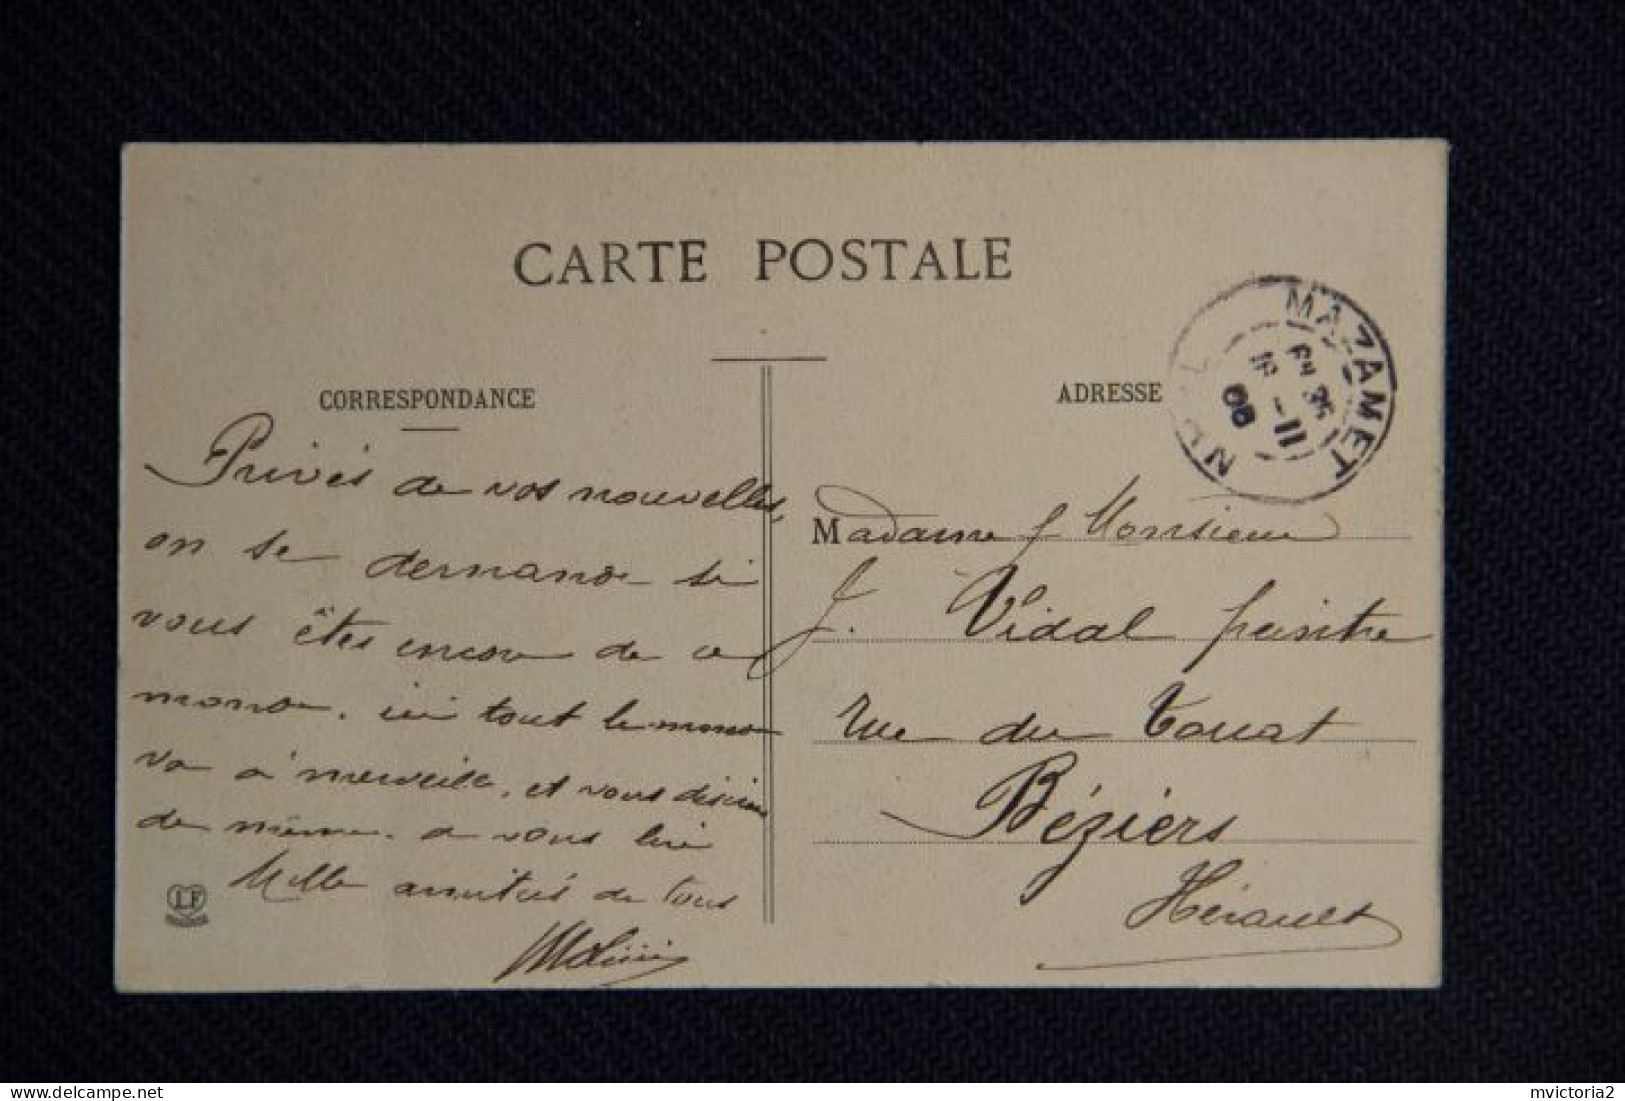 CARTE POSTALE
CORRESPONDANCE
Privés de vos nouvelles,
on se demande si
vous êtes encore de ce
monde. ici tout le monde
va à merveille, et vous désirons
de même. a vous lire
Mille amitiés de tous
ADRESSE
MAZAMET
11
08
Madame & Monsieur
J. Vidal peintre
rue du Touat
Béziers
Hérault
LF
mvictoria2